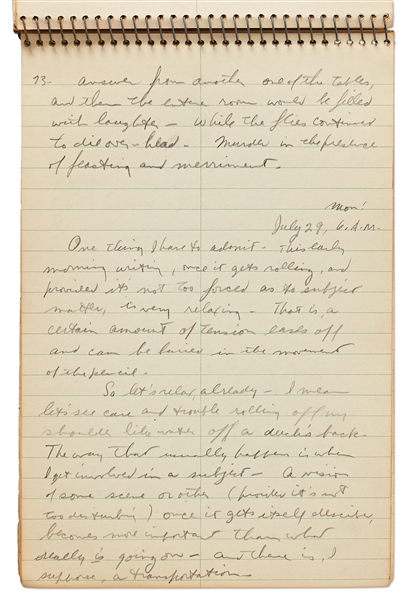 73- answer from another one of the tables,
and then the entire room would be filled
with laughter - while the flies continued
to die over-head. Murder in the presence
of feasting and merriment.
Mon!
July 29, 6. A.M.
One thing I have to admit - This early
morning writing, once it gets rolling, and
provided it's not too forced as to subject
matter, is very relaxing - That is, a
certain amount of tension eases off
and can be buried in the movement
of the pencil.
So let's relax, already - I mean
let's see care and trouble rolling off my
shoulder like water off a duck's back.
The way that usually happens is when
I get involved in a subject - A vision
of some scene or other (provided it's not
too disturbing) once it gets itself described,
becomes more important than what
really is going on - and there is, I
suppose, a transportation